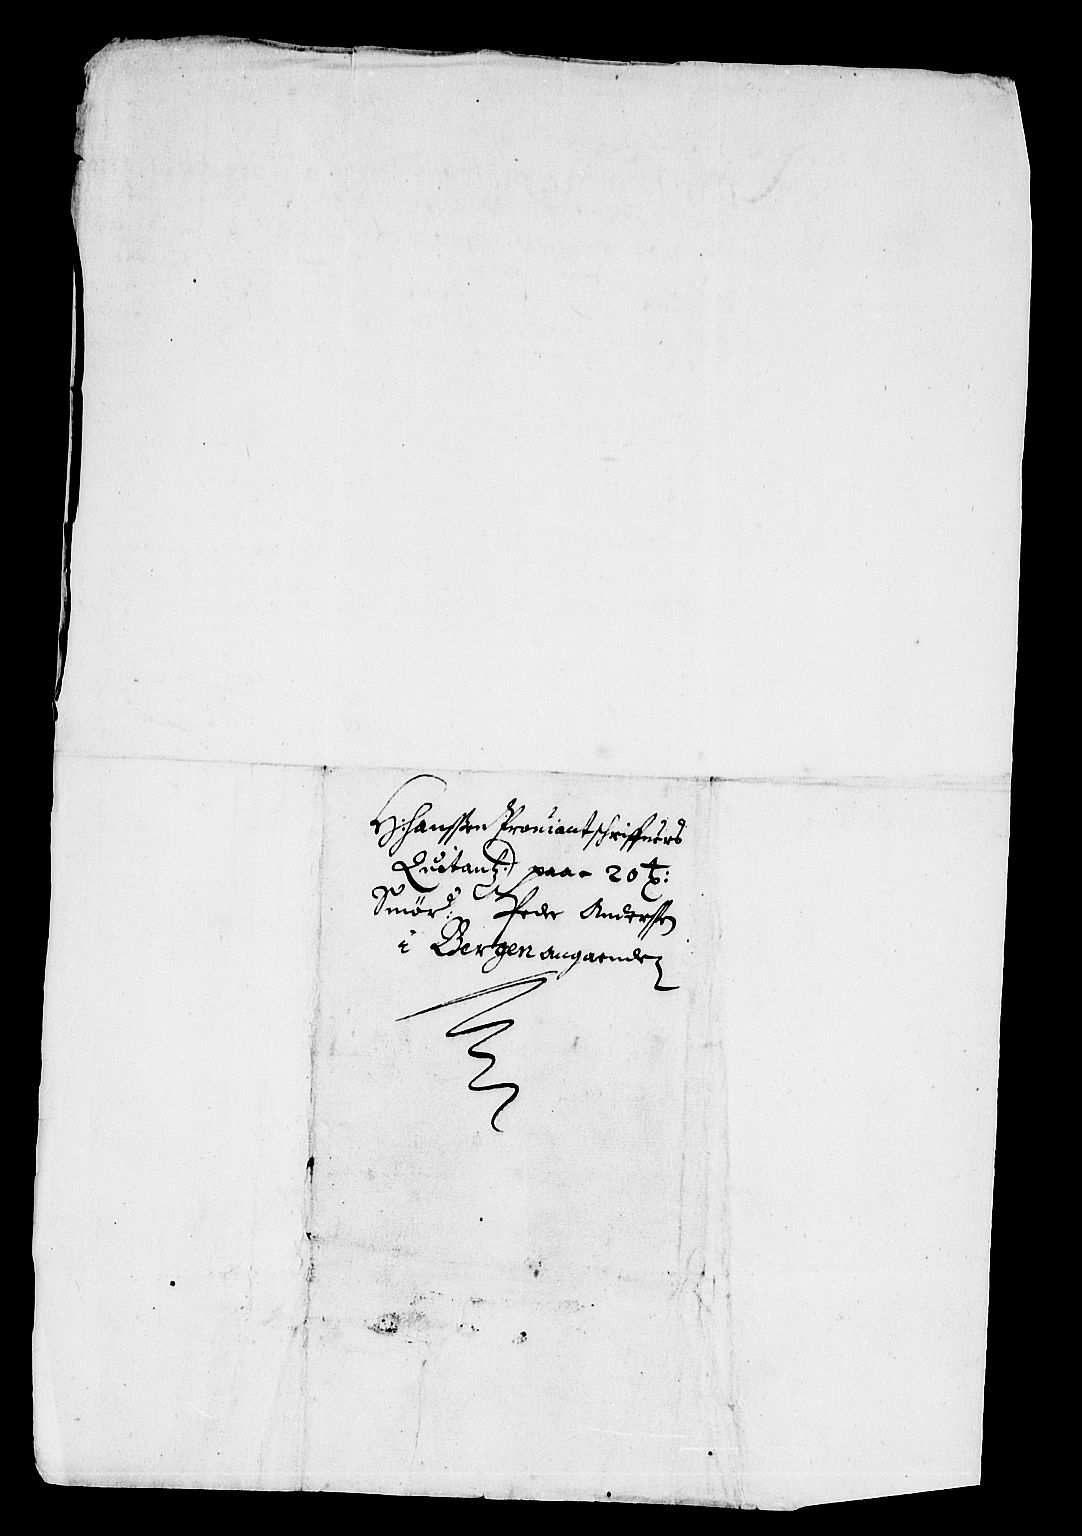 H: Hanssen Prouiantschriffuers
Quitantz paa 20 t:
Smør: Peder Anderssen
i Bergen angaende